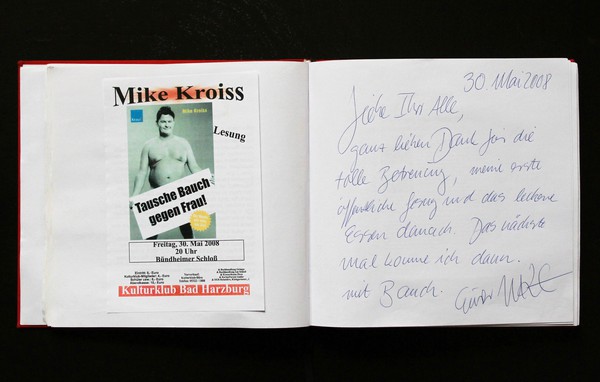 Mike Kroiss
Mike Kroiss
Lesung
Tausche Bauch
gegen Frau!
Freitag, 30. Mai 2008
20 Uhr
Bündheimer Schloß
Kulturklub Bad Harzburg
30. Mai 2008
Liebe Ihr Alle,
ganz lieben Dank für die
tolle Betreuung, meine erste
öffentliche Lesung und das leckere
Essen danach. Das nächste
mal komme ich dann
mit Bauch.